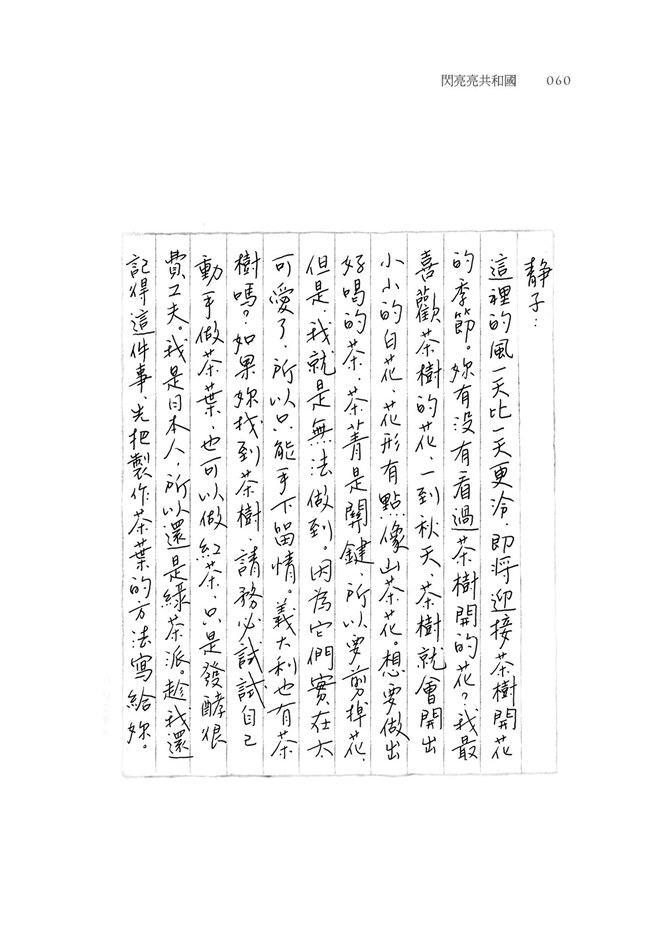 閃亮亮共和國 060
靜子：
這裡的風一天比一天更冷，即將迎接茶樹開花
的季節。妳有沒有看過茶樹開的花？我最
喜歡茶樹的花，一到秋天，茶樹就會開出
小小的白花，花形有點像山茶花。想要做出
好喝的茶，茶菁是關鍵，所以要剪掉花，
但是，我就是無法做到。因為它們實在太
可愛了，所以只能手下留情。義大利也有茶
樹嗎？如果妳找到茶樹，請務必試試自己
動手做茶葉，也可以做紅茶，只是發酵很
費工夫。我是日本人，所以還是綠茶派。趁我還
記得這件事，先把製作茶葉的方法寫給妳。